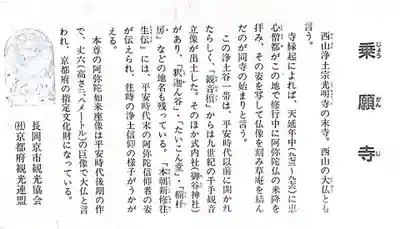 乗願寺
じょうがんじ
西山浄土宗光明寺の末寺。西山の大仏とも
言う。
寺縁起によれば、天延年中(九七三〜九七六)に恵
心僧都がこの地で修行中に阿弥陀仏の来降を
拝み、その姿を写して仏像を刻み草庵を結ん
だのが同寺の始まりと言う。
この浄土谷一帯は、平安時代以前に開かれ
たらしく、「観音
」からは九世紀の千手観音
立像が出土した。そのほか式内社(御谷神社)
があり、「釈迦ん谷」・「たいこん堂」・「
房」などの地名も残っている。「本朝新修往
生伝」には、平安時代末の阿弥陀信仰者の姿
が伝えられ、往時の浄土信仰の様子がうかが
える。
本尊の阿弥陀如来座像は平安時代後期の作
で、丈六(高さ二八メートル)の巨像で大仏と言
われ、京都府の指定文化財になっている。
長岡京市観光協会
㈳京都府観光連盟